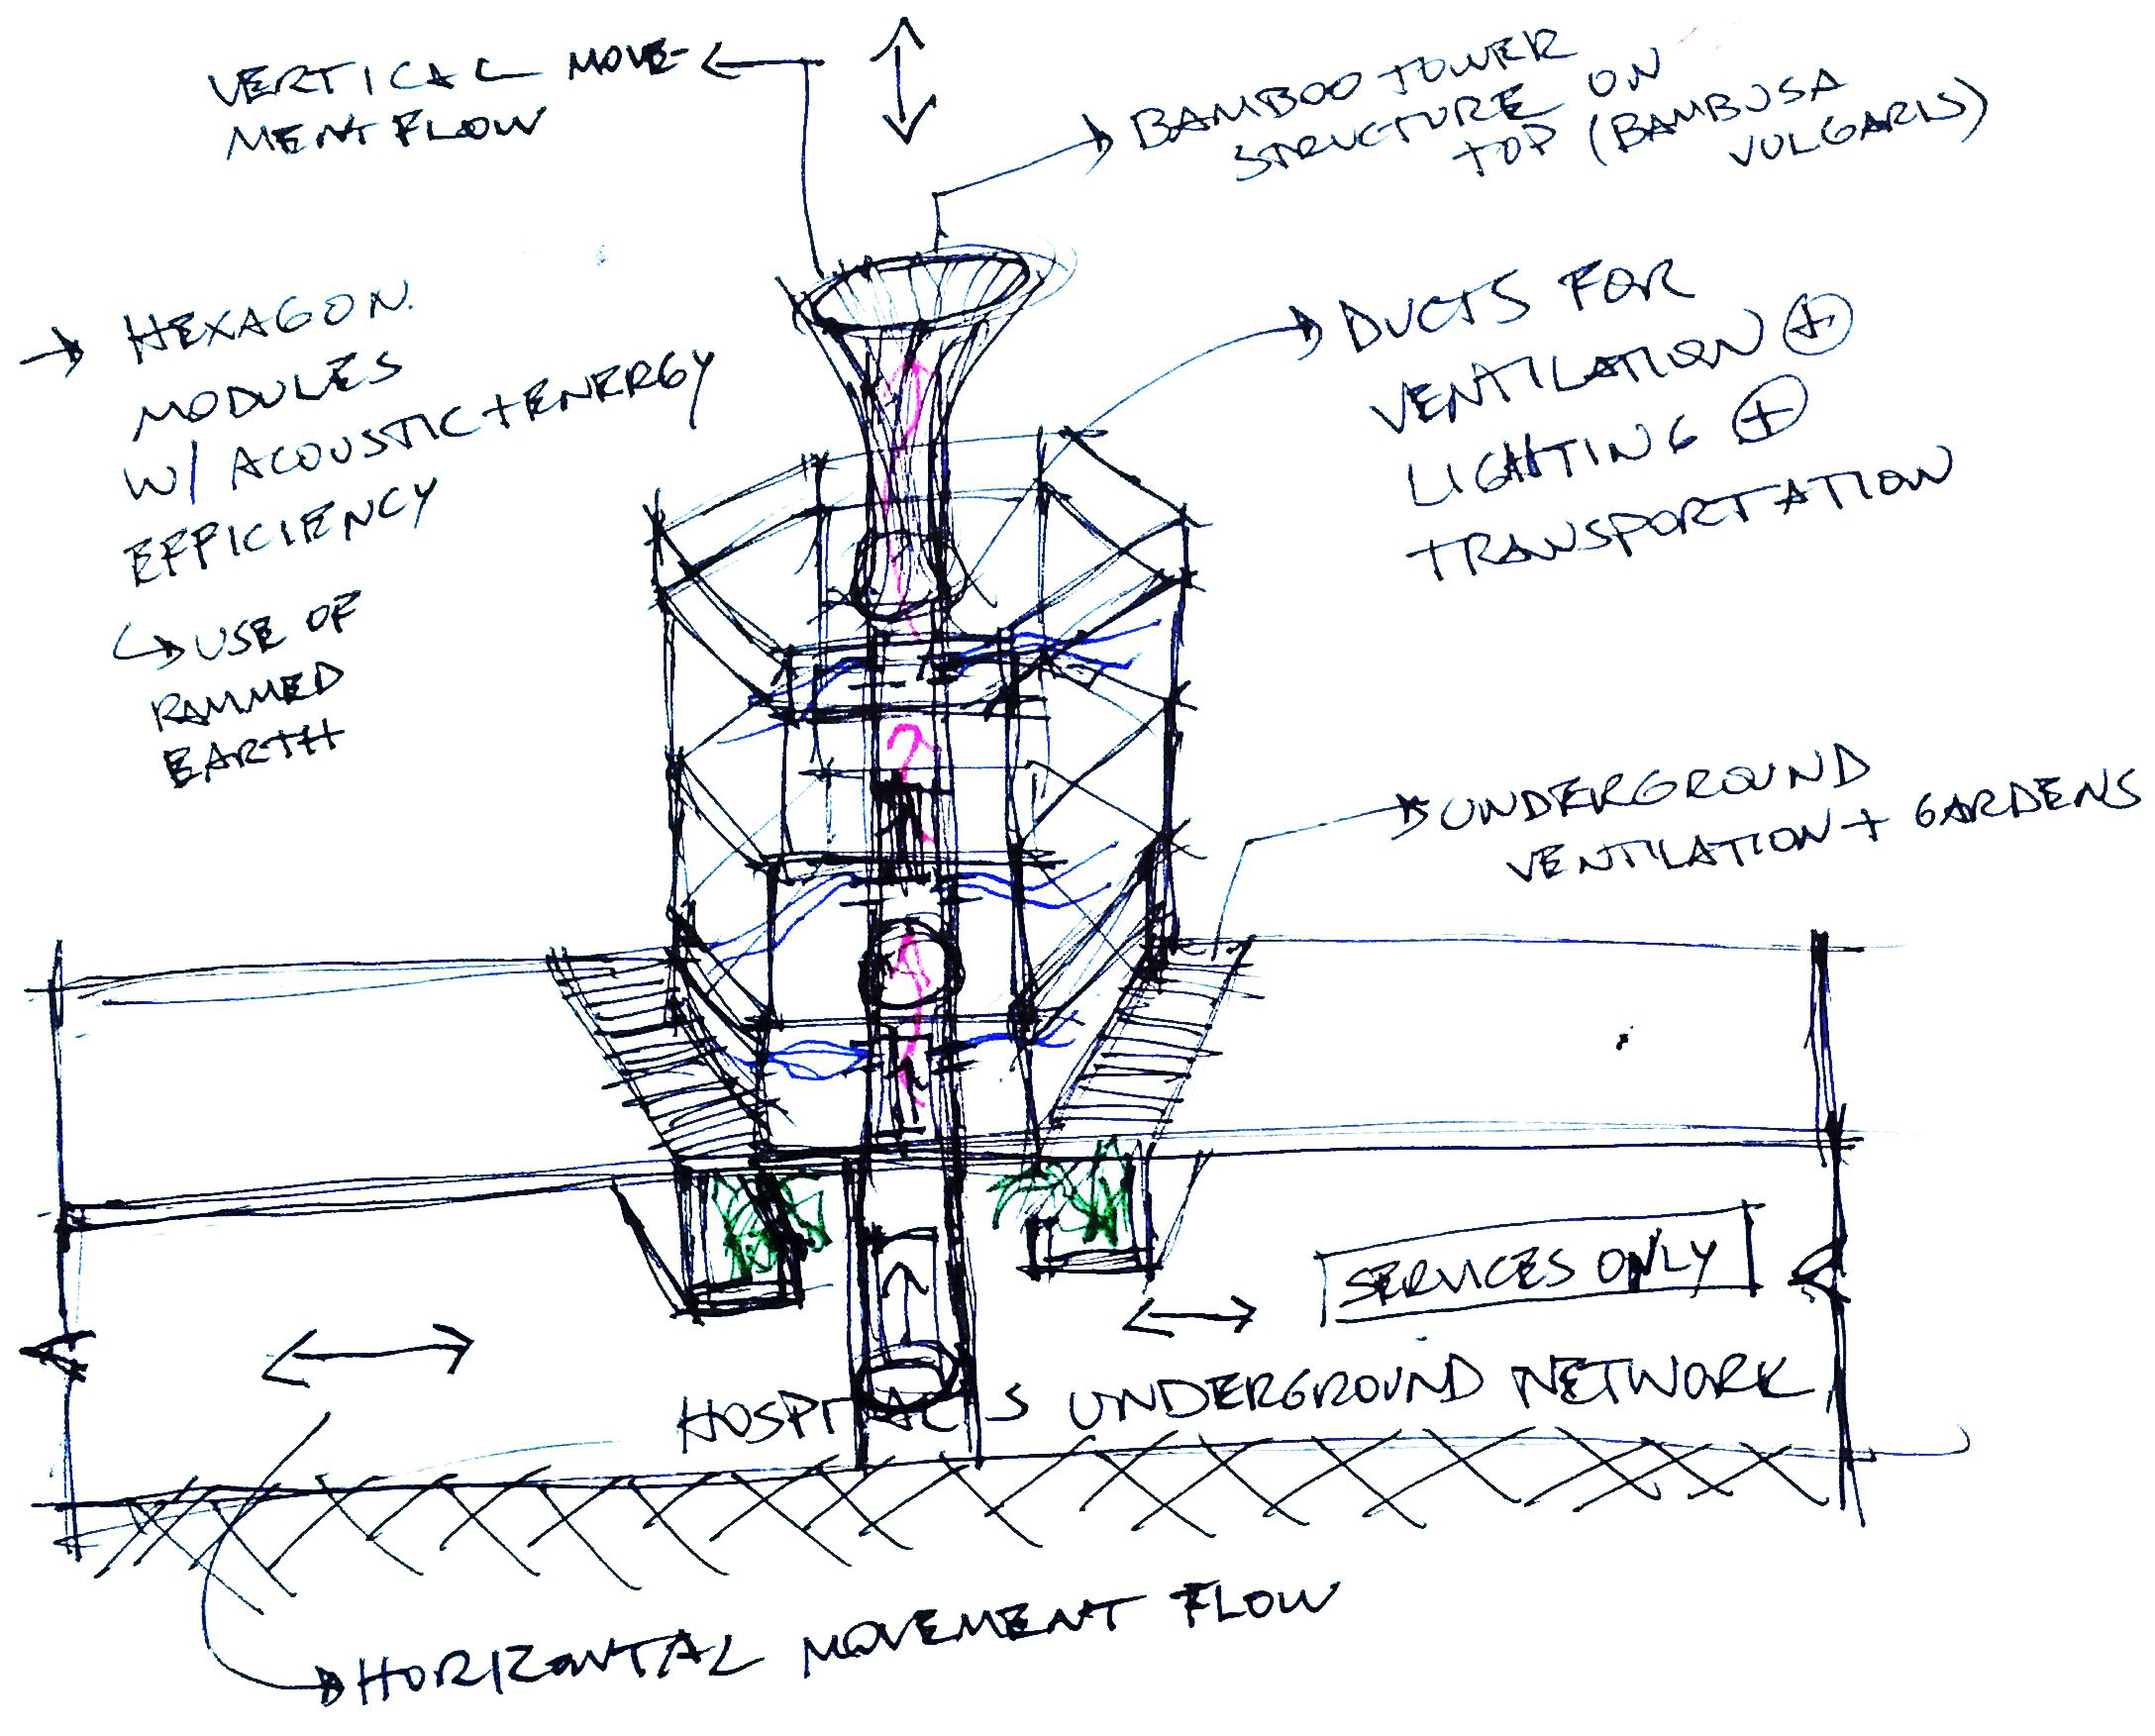 VERTICAL MOVE-
MENT FLOW
BAMBOO TOWER
STRUCTURE ON
TOP (BAMBUSA
VULGARIS)
HEXAGON.
MODULES
W/ ACOUSTIC+ENERGY
EFFICIENCY
USE OF
RAMMED
EARTH
DUCTS FOR
VENTILATION +
LIGHTING +
TRANSPORTATION
UNDERGROUND
VENTILATION + GARDENS
SERVICES ONLY
HOSPITAL'S UNDERGROUND NETWORK
HORIZONTAL MOVEMENT FLOW